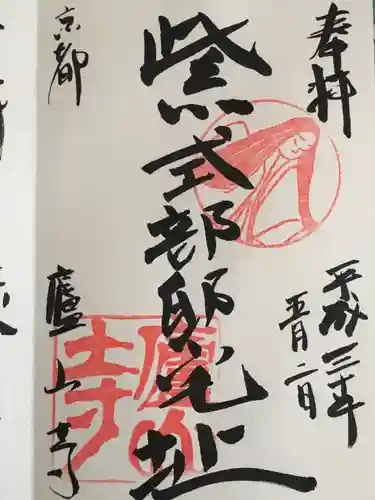 奉拝
平成三十年
五月二日
紫式部邸宅址
京都
廬山寺
廬山寺